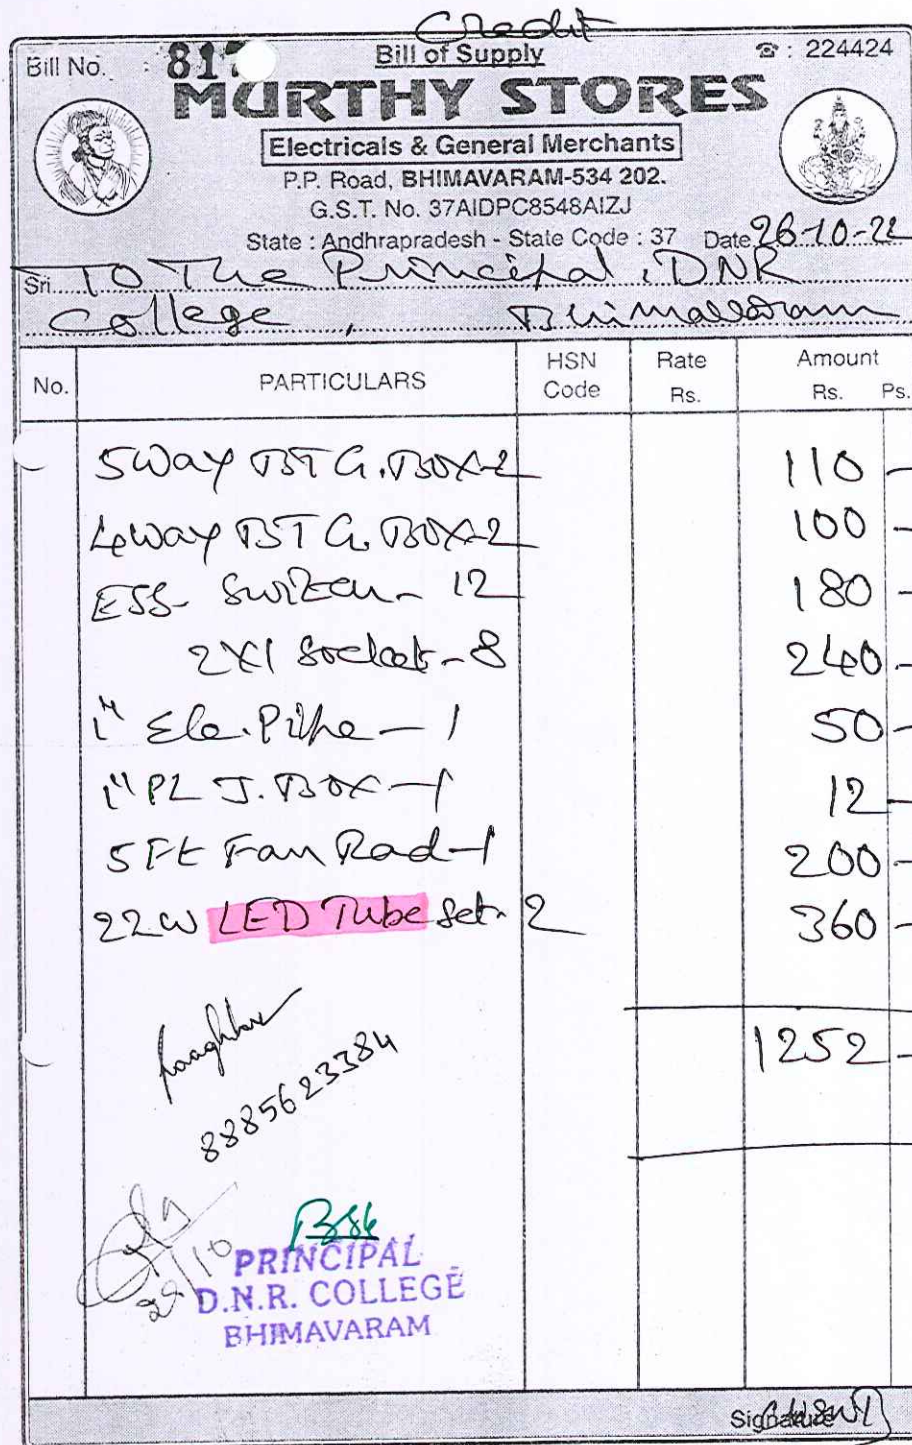 Credit
Bill No. : 817
Bill of Supply
☎ : 224424
MURTHY STORES
Electricals & General Merchants
P.P. Road, BHIMAVARAM-534 202.
G.S.T. No. 37AIDPC8548AIZJ
State : Andhrapradesh - State Code : 37 Date 26-10-22
Sri To The Principal, DNR
College, Bhimavaram
No. PARTICULARS HSN Code Rate Rs. Amount Rs. Ps.
5way BT G. BOX-2 110 -
4way BT G. BOX-2 100 -
ESS- Switch - 12 180 -
2X1 Socket - 8 240 -
1" Ele. Pipe - 1 50 -
1" PL J. BOX - 1 12 -
5 Ft Fan Rad - 1 200 -
22W LED Tube Set - 2 360 -
1252 -
8885623384
29/10
PRINCIPAL
D.N.R. COLLEGE
BHIMAVARAM
Signature